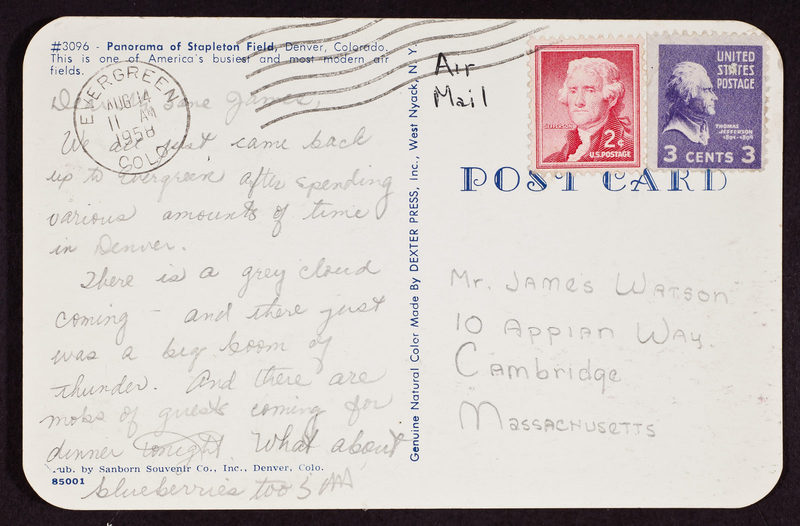 #3096 - Panorama of Stapleton Field, Denver, Colorado.
This is one of America's busiest and most modern air
fields.
EVERGREEN
AUG 14
11 AM
1958
COLO.
Air
Mail
JEFFERSON
2¢
U.S. POSTAGE
UNITED
STATES
POSTAGE
THOMAS
JEFFERSON
1801-1809
3 CENTS 3
POST CARD
James,
We all just came back
up to Evergreen after spending
various amounts of time
in Denver.
There is a grey cloud
coming - and there just
was a big boom of
thunder. And there are
mobs of guests coming for
dinner tonight. What about
blueberries too
Pub. by Sanborn Souvenir Co., Inc., Denver, Colo.
85001
Genuine Natural Color Made By DEXTER PRESS, Inc., West Nyack, N. Y.
Mr. JAMES WATSON
10 APPIAN WAY.
Cambridge
MASSACHUSETTS